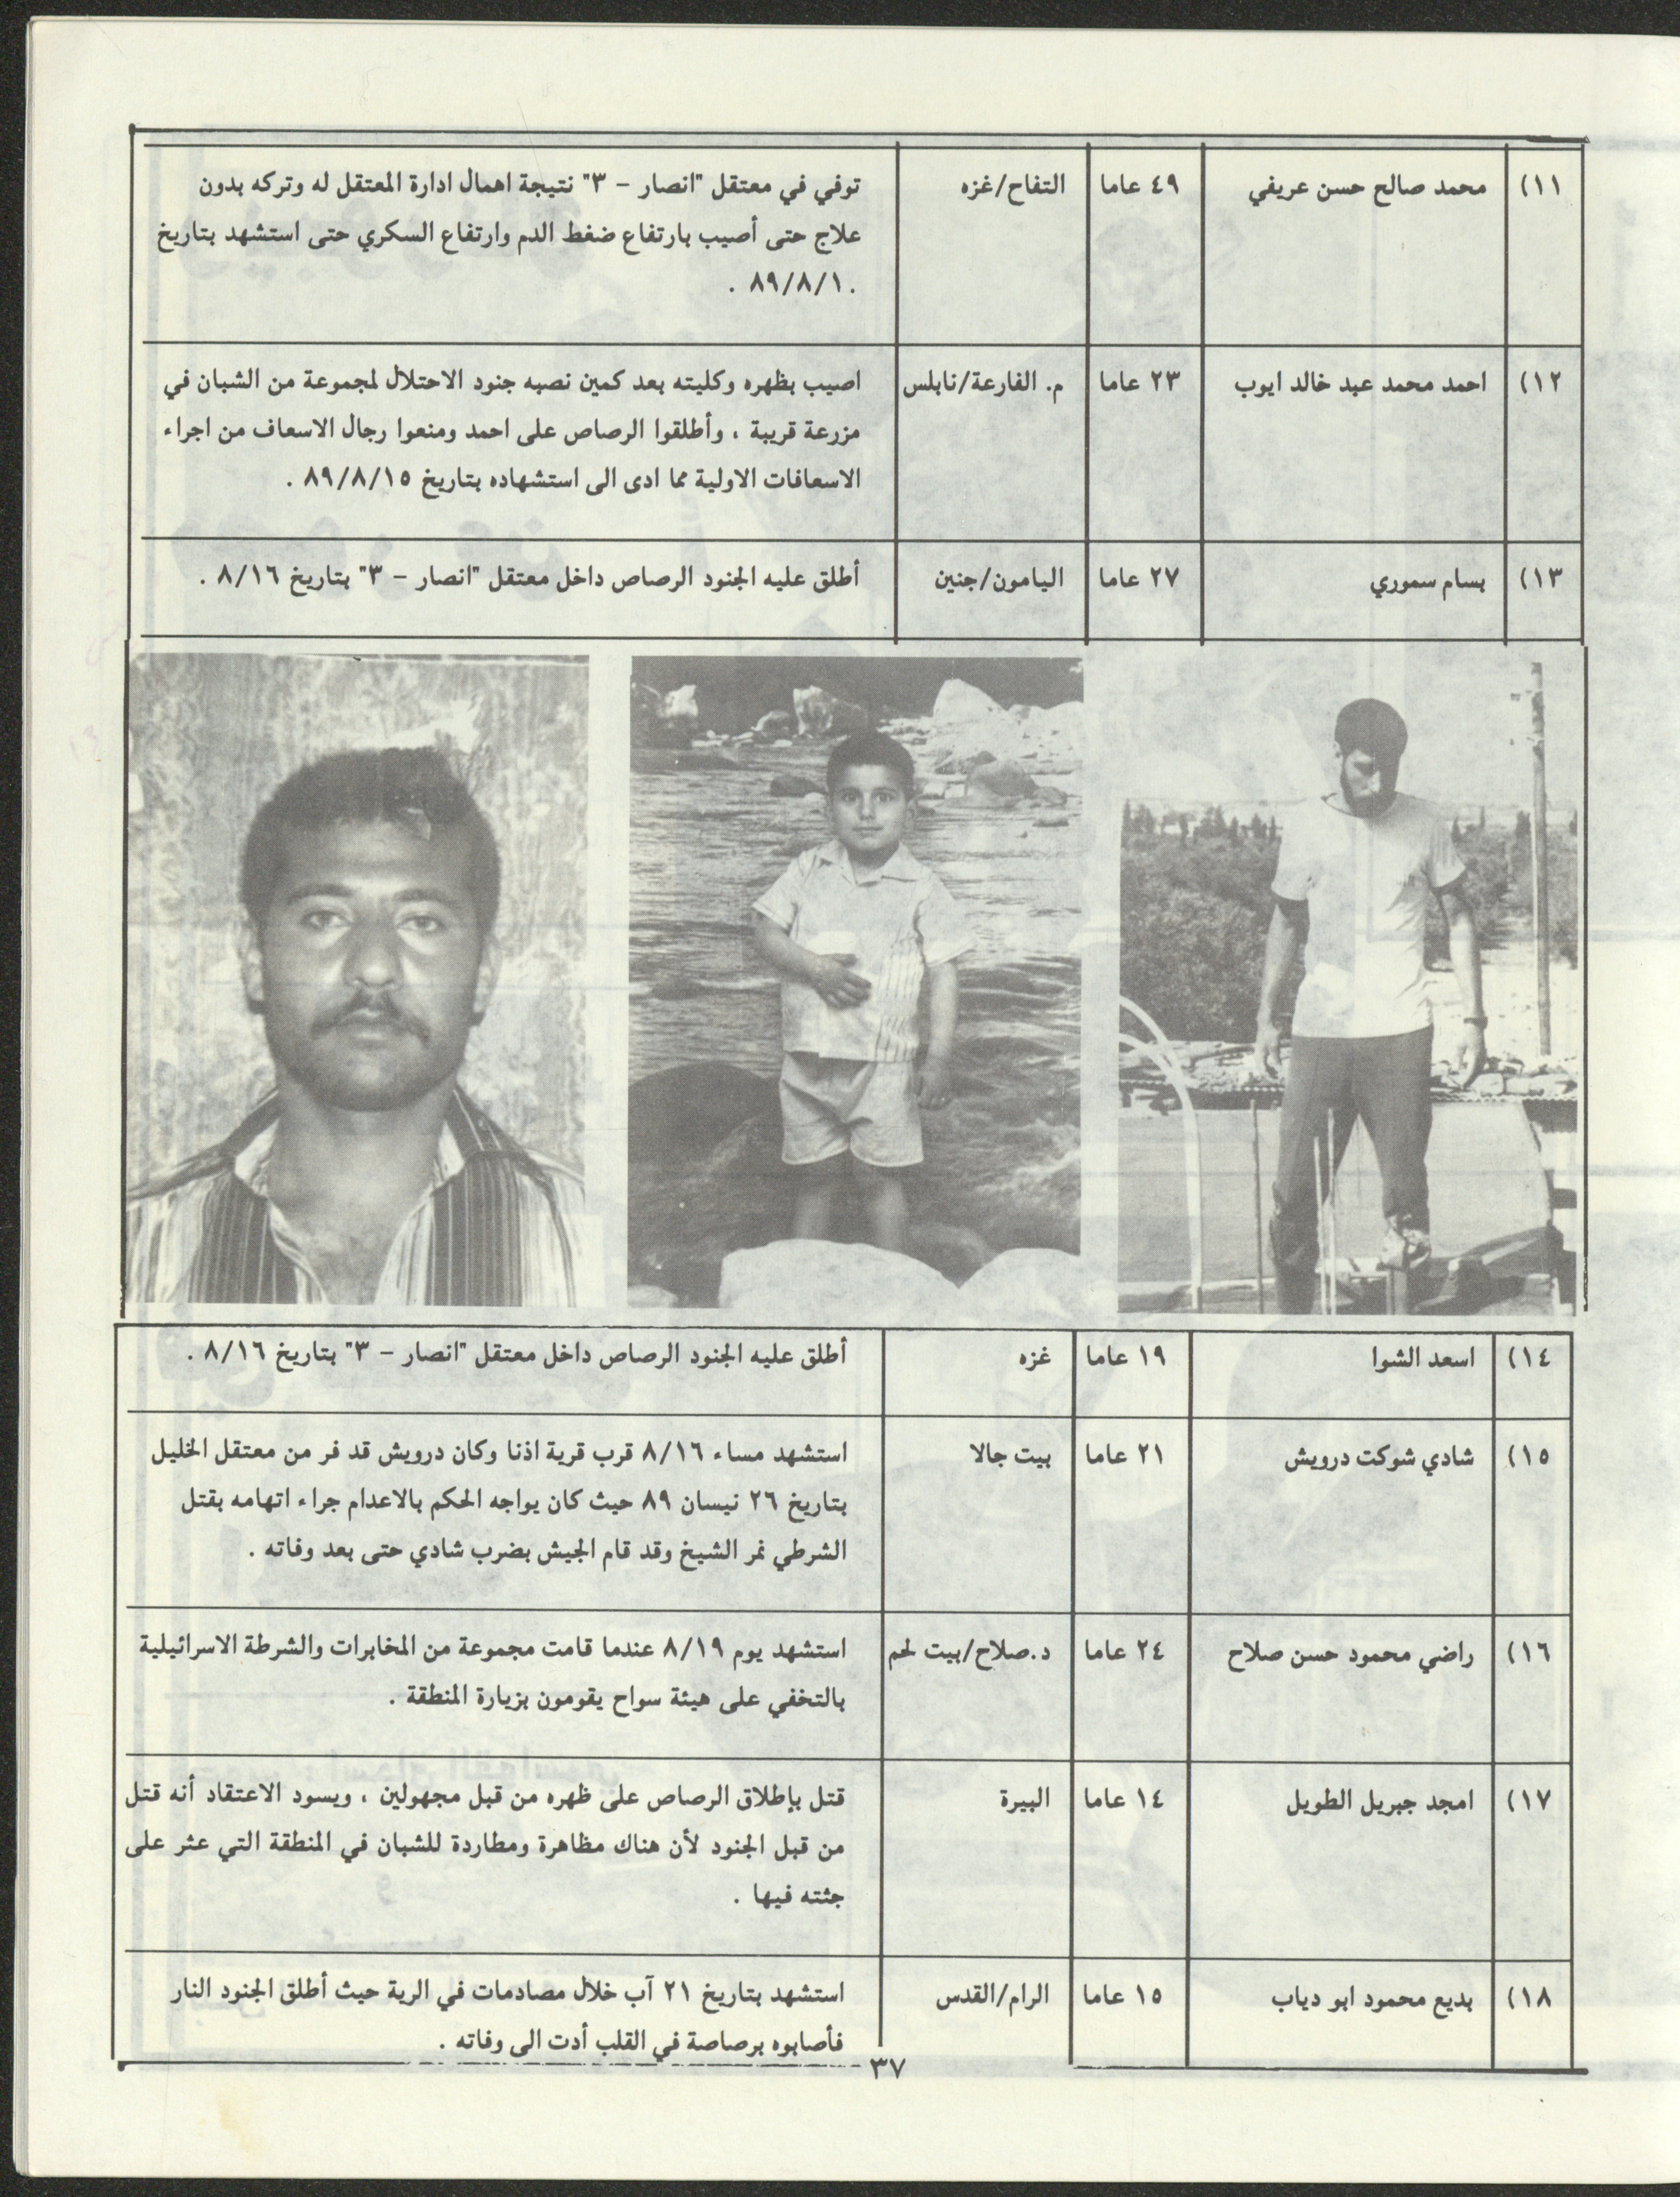 ١١) محمد صالح حسن عريفي ٤٩ عاما التفاح/غزه توفي في معتقل "انصار - ٣" نتيجة اهمال ادارة المعتقل له وتركه بدون
علاج حتى أصيب بارتفاع ضغط الدم وارتفاع السكري حتى استشهد بتاريخ
٨٩/٨/١٠ .
١٢) احمد محمد عبد خالد ايوب ٢٣ عاما م. الفارعة/نابلس اصيب بظهره وكليته بعد كمين نصبه جنود الاحتلال لمجموعة من الشبان في
مزرعة قريبة ، وأطلقوا الرصاص على احمد ومنعوا رجال الاسعاف من اجراء
الاسعافات الاولية مما ادى الى استشهاده بتاريخ ٨٩/٨/١٥ .
١٣) بسام سموري ٢٧ عاما اليامون/جنين أطلق عليه الجنود الرصاص داخل معتقل "انصار - ٣" بتاريخ ٨/١٦ .
١٤) اسعد الشوا ١٩ عاما غزه أطلق عليه الجنود الرصاص داخل معتقل "انصار - ٣" بتاريخ ٨/١٦ .
١٥) شادي شوكت درويش ٢١ عاما بيت جالا استشهد مساء ٨/١٦ قرب قرية اذنا وكان درويش قد فر من معتقل الخليل
بتاريخ ٢٦ نيسان ٨٩ حيث كان يواجه الحكم بالاعدام جراء اتهامه بقتل
الشرطي نمر الشيخ وقد قام الجيش بضرب شادي حتى بعد وفاته .
١٦) راضي محمود حسن صلاح ٢٤ عاما د.صلاح/بيت لحم استشهد يوم ٨/١٩ عندما قامت مجموعة من المخابرات والشرطة الاسرائيلية
بالتخفي على هيئة سواح يقومون بزيارة المنطقة .
١٧) امجد جبريل الطويل ١٤ عاما البيرة قتل بإطلاق الرصاص على ظهره من قبل مجهولين ، ويسود الاعتقاد أنه قتل
من قبل الجنود لأن هناك مظاهرة ومطاردة للشبان في المنطقة التي عثر على
جثته فيها .
١٨) بديع محمود ابو دياب ١٥ عاما الرام/القدس استشهد بتاريخ ٢١ آب خلال مصادمات في الرية حيث أطلق الجنود النار
فأصابوه برصاصة في القلب أدت الى وفاته .
٣٧